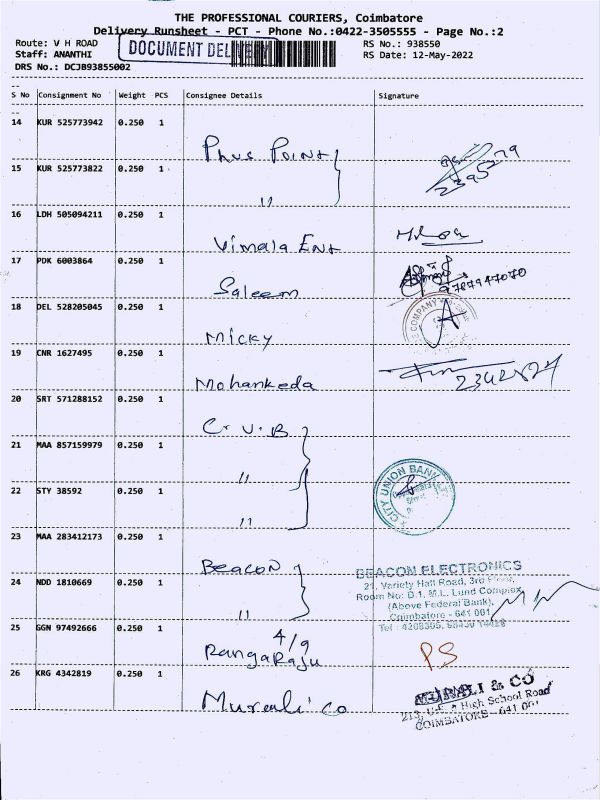 THE PROFESSIONAL COURIERS, Coimbatore
Delivery Runsheet - PCT - Phone No.:0422-3505555 - Page No.:2
Route: V H ROAD RS No.: 938550
Staff: ANANTHI DOCUMENT RS Date: 12-May-2022
DRS No.: DCJB93855002
S No Consignment No Weight PCS Consignee Details Signature
14 KUR 525773942 0.250 1
Plus Point
15 KUR 525773822 0.250 1
"
16 LDH 505094211 0.250 1
Vimala Ent
17 PDK 6003864 0.250 1
Saleem
18 DEL 528205045 0.250 1
COMPANY
Micky
19 CNR 1627495 0.250 1
Mohankeda
20 SRT 571288152 0.250 1
C.U.B
21 MAA 857159979 0.250 1
"
CITY UNION BANK
22 STY 38592 0.250 1
"
23 MAA 283412173 0.250 1
Beacon
BEACON ELECTRONICS
24 NDD 1810669 0.250 1
21, Variety Hall Road, 3rd Floor,
Room No: D.1, M.L. Lund Complex
(Above Federal Bank),
"
Coimbatore - 641 001
Tel
25 GGN 97492666 0.250 1
4/9
Rangaraju
PS
26 KRG 4342819 0.250 1
MURALI & CO
Murali co
High School Road
COIMBATORE - 641 001